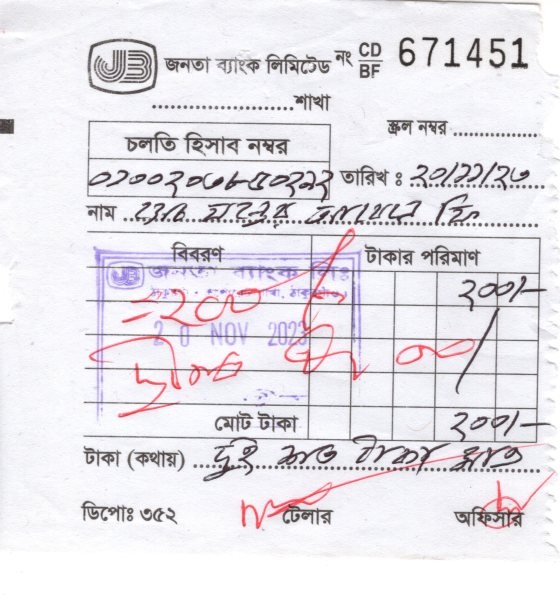 JB জনতা ব্যাংক লিমিটেড নং CD/BF 671451
..................শাখা
স্ক্রল নম্বর ..................
চলতি হিসাব নম্বর
তারিখ : ২০/১১/২৩
নাম
বিবরণ টাকার পরিমাণ
JB জনতা ব্যাংক লিঃ
২০০/-
=২০০/-
20 NOV 2023
দুইশত
মোট টাকা ২০০/-
টাকা (কথায়) দুই শত টাকা মাত্র
ডিপোঃ ৩৫২ টেলার অফিসার